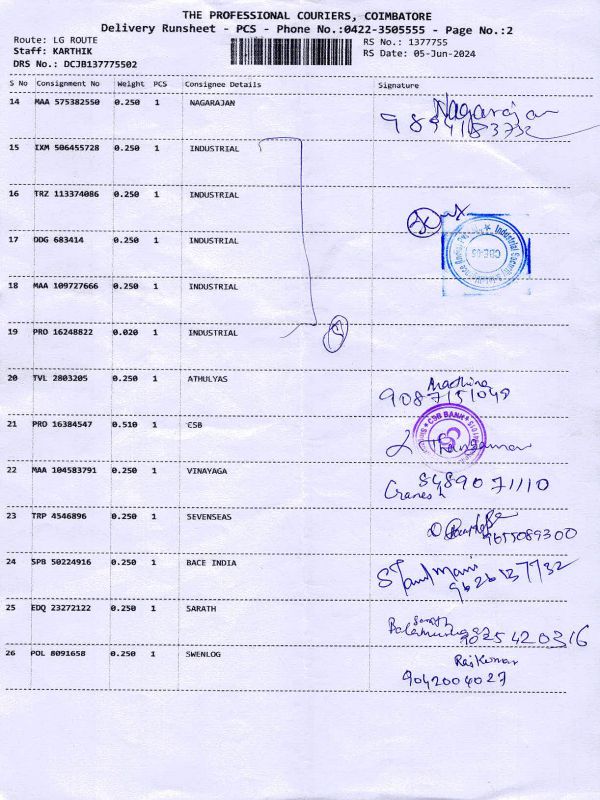 THE PROFESSIONAL COURIERS, COIMBATORE
Delivery Runsheet - PCS - Phone No.:0422-3505555 - Page No.:2
Route: LG ROUTE
Staff: KARTHIK
DRS No.: DCJB137775502
RS No.: 1377755
RS Date: 05-Jun-2024
S No Consignment No Weight PCS Consignee Details Signature
14 MAA 575382550 0.250 1 NAGARAJAN
Nagarajan
15 IXM 506455728 0.250 1 INDUSTRIAL
16 TRZ 113374086 0.250 1 INDUSTRIAL
17 DDG 683414 0.250 1 INDUSTRIAL
18 MAA 109727666 0.250 1 INDUSTRIAL
19 PRO 16248822 0.020 1 INDUSTRIAL
5
20 TVL 2803205 0.250 1 ATHULYAS
21 PRO 16384547 0.510 1 CSB
CSB BANK
22 MAA 104583791 0.250 1 VINAYAGA
8489071110
Cranesh
23 TRP 4546896 0.250 1 SEVENSEAS
9655089300
24 SPB 50224916 0.250 1 BACE INDIA
25 EDQ 23272122 0.250 1 SARATH
Sarath
26 POL 8091658 0.250 1 SWENLOG
Rajkumar
9042004027